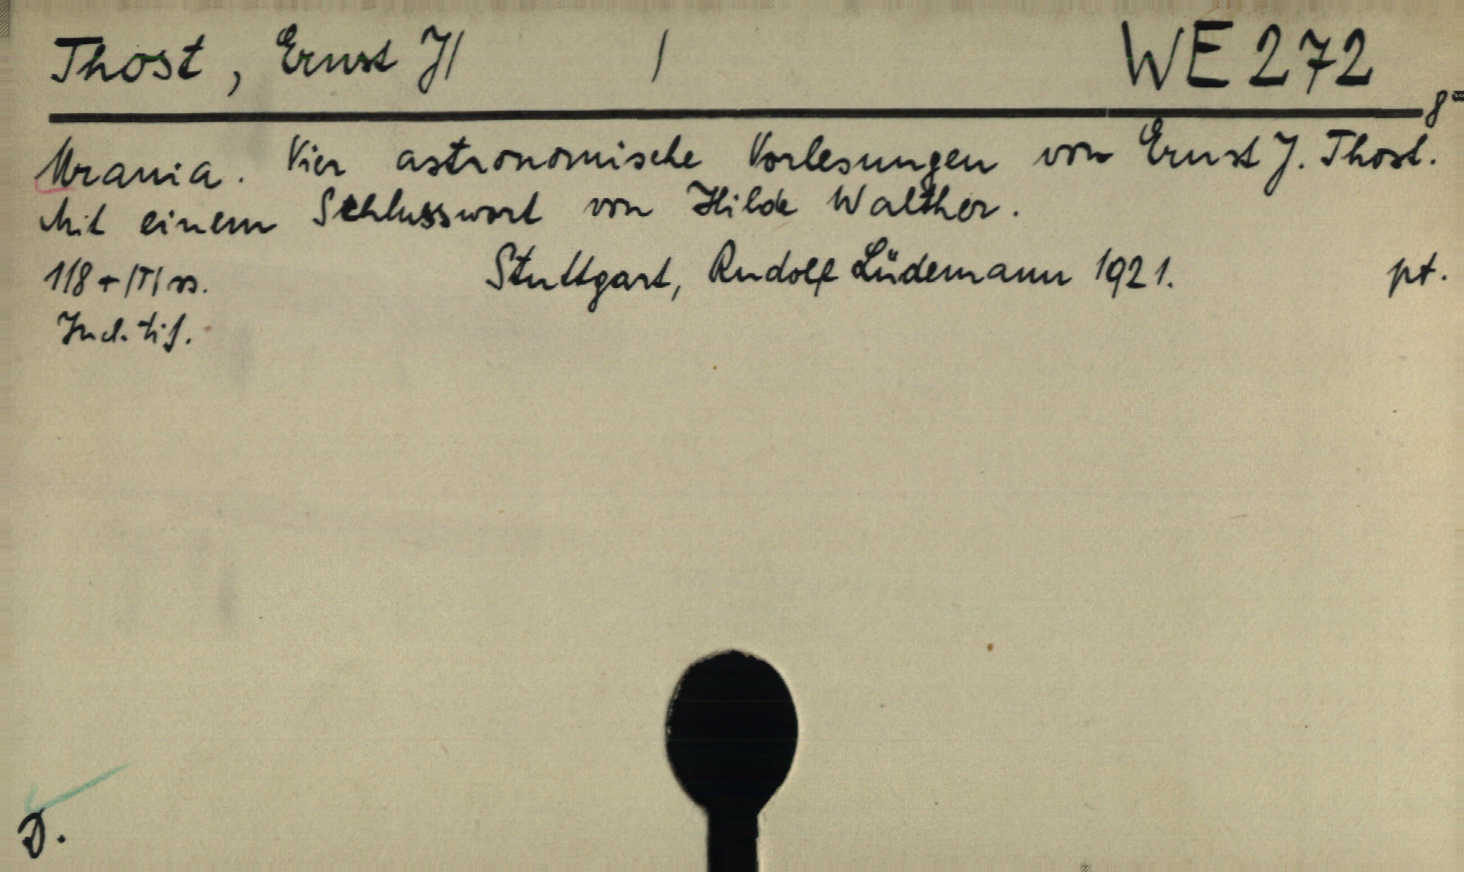 Thost, Ernst J/ / WE 272
8°
Urania. Vier astronomische Vorlesungen von Ernst J. Thost.
Mit einem Schlusswort von Hilde Walther.
118 + /T/ ss. Stuttgart, Rudolf Lüdemann 1921. pt.
Incl. tif.
D.